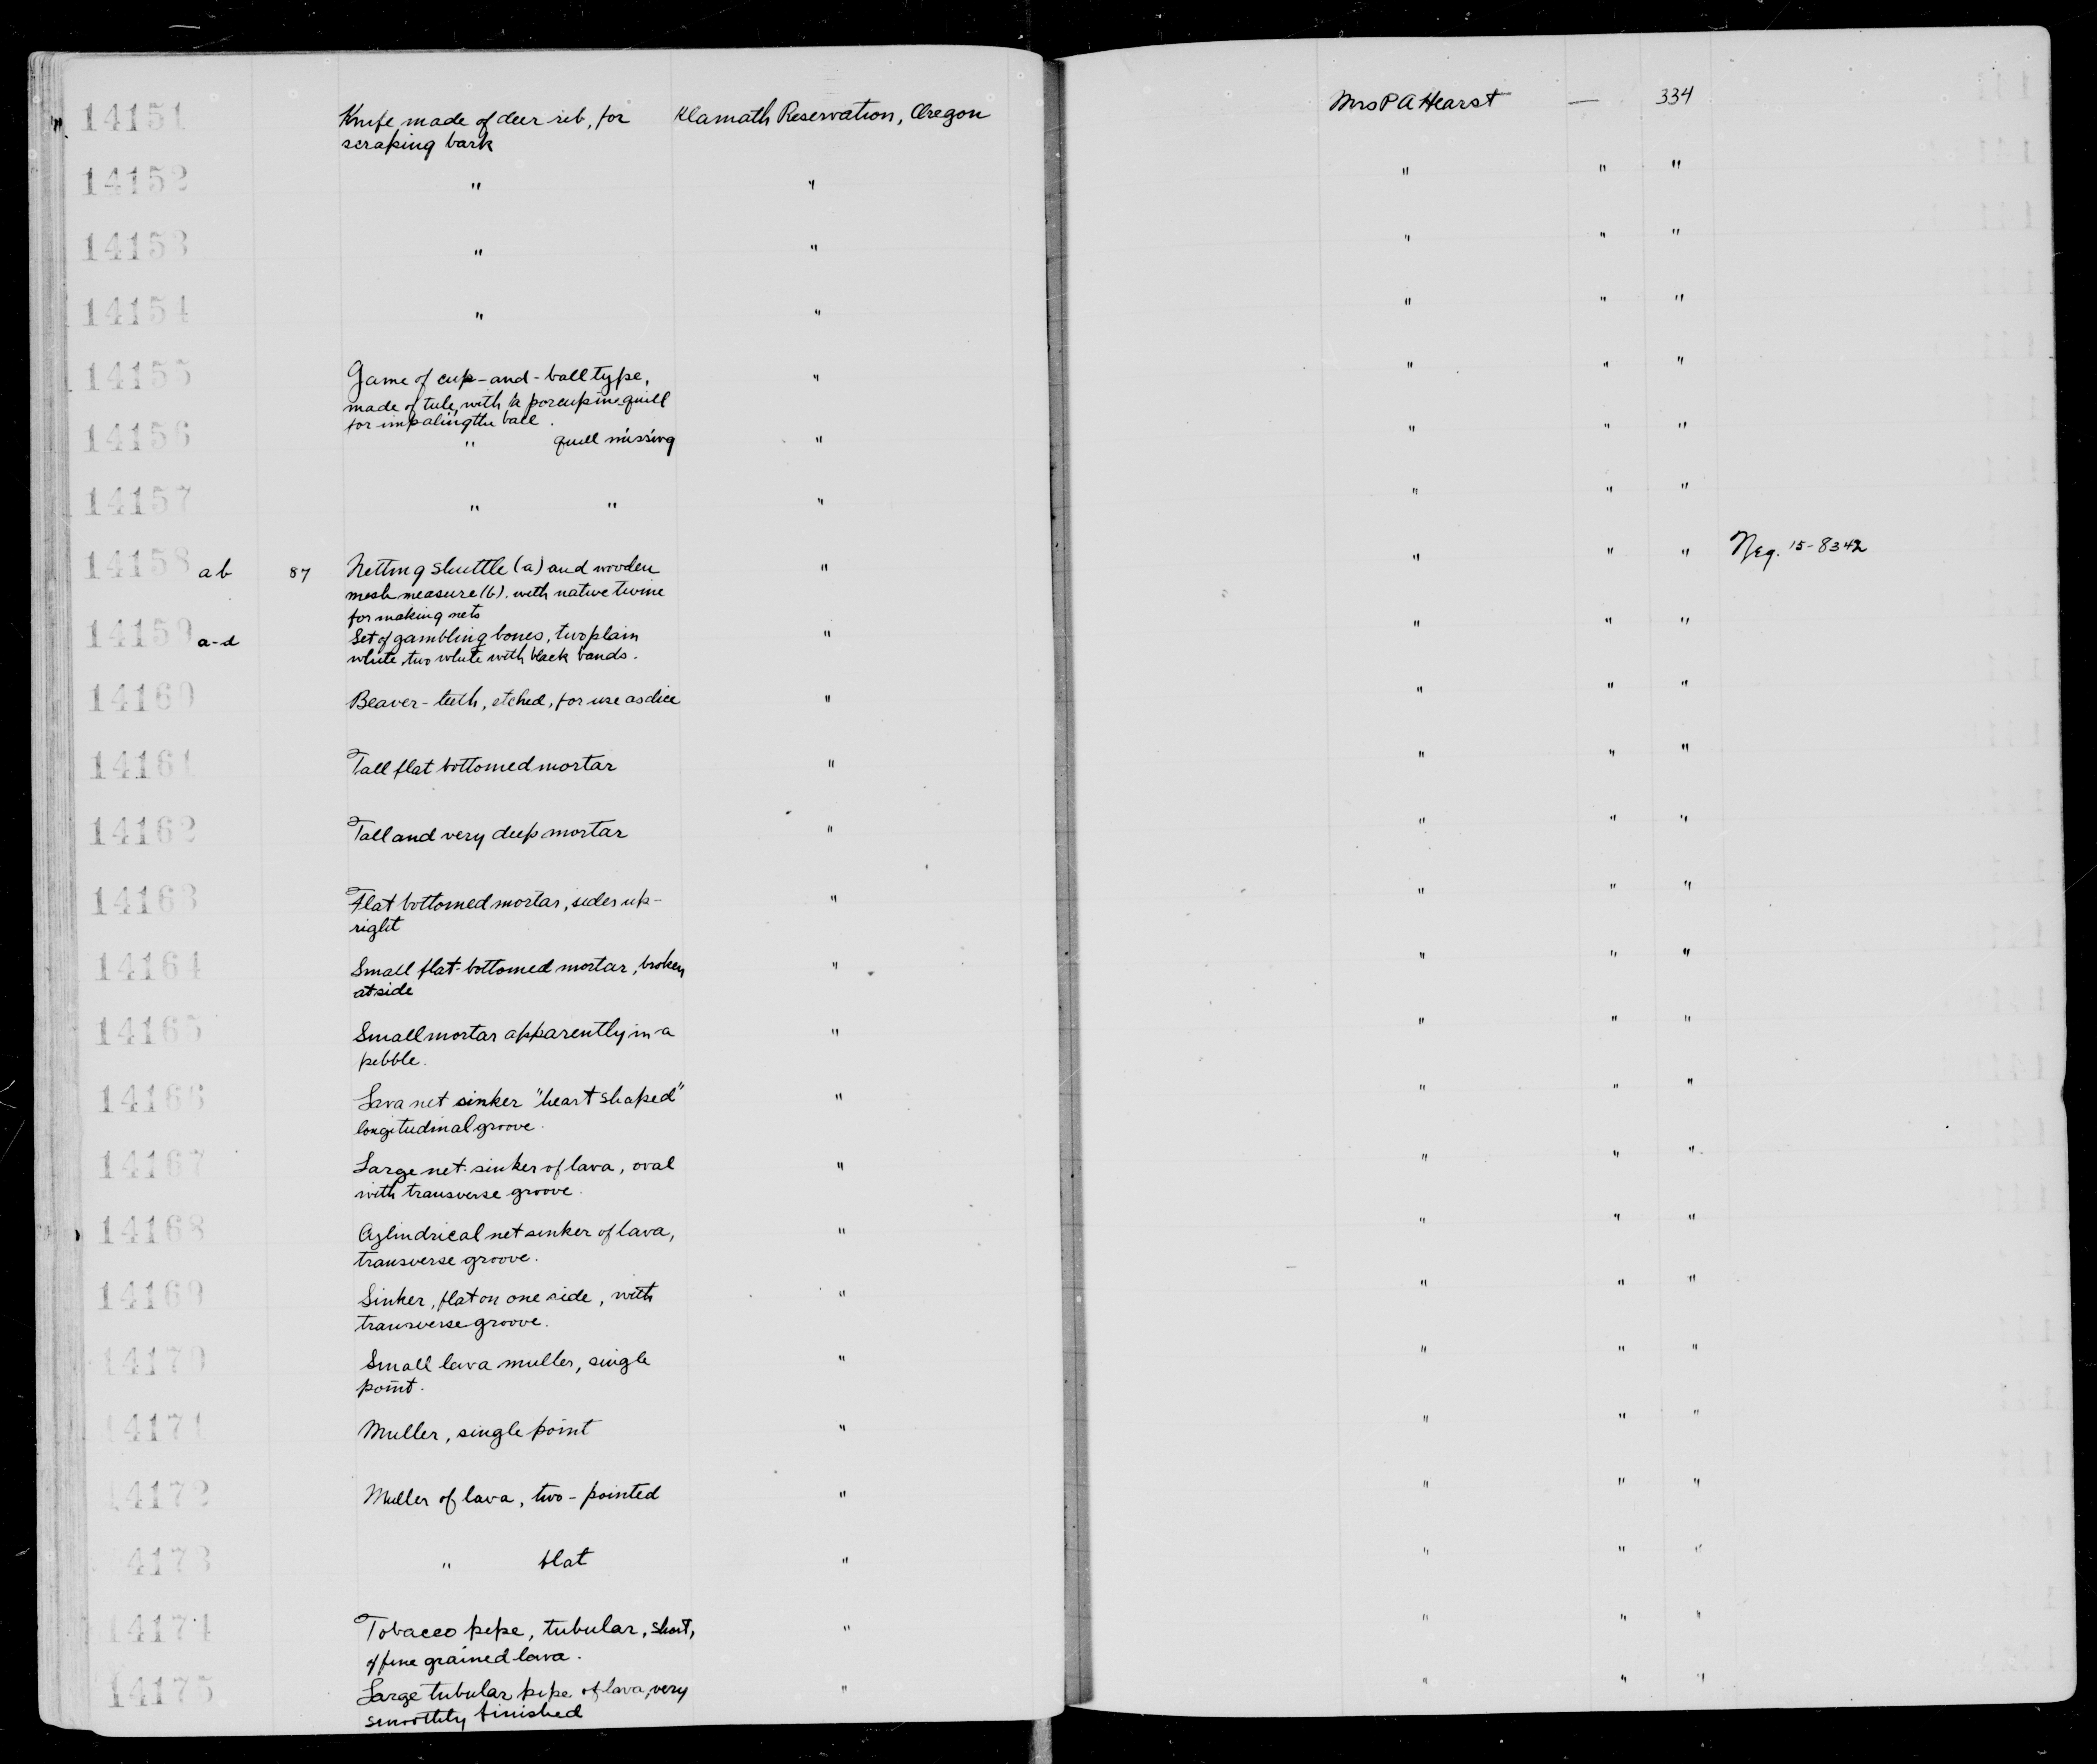 14151 Knife made of deer rib, for Klamath Reservation, Oregon Mrs P A Hearst — 334
scraping bark
14152 " " " " "
14153 " " " " "
14154 " " " " "
14155 Game of cup-and-ball type, " " " "
made of tule, with a porcupine quill
for impaling the ball.
14156 " quill missing " " " "
14157 " " " " " "
14158 ab 87 Netting shuttle (a) and wooden " " " " Neg. 15-8342
mesh measure (b). with native twine
for making nets
14159 a-d Set of gambling bones, two plain " " " "
white, two white with black bands.
14160 Beaver-teeth, etched, for use as dice " " " "
14161 Tall flat bottomed mortar " " " "
14162 Tall and very deep mortar " " " "
14163 Flat bottomed mortar, sides up- " " " "
right
14164 Small flat-bottomed mortar, broken " " " "
at side
14165 Small mortar apparently in a " " " "
pebble.
14166 Lava net sinker "heart shaped" " " " "
longitudinal groove.
14167 Large net-sinker of lava, oval " " " "
with transverse groove.
14168 Cylindrical net sinker of lava, " " " "
transverse groove.
14169 Sinker, flat on one side, with " " " "
transverse groove.
14170 Small lava muller, single " " " "
point.
14171 Muller, single point " " " "
14172 Muller of lava, two-pointed " " " "
14173 " flat " " " "
14174 Tobacco pipe, tubular, short, " " " "
of fine grained lava.
14175 Large tubular pipe of lava, very " " " "
smoothly finished